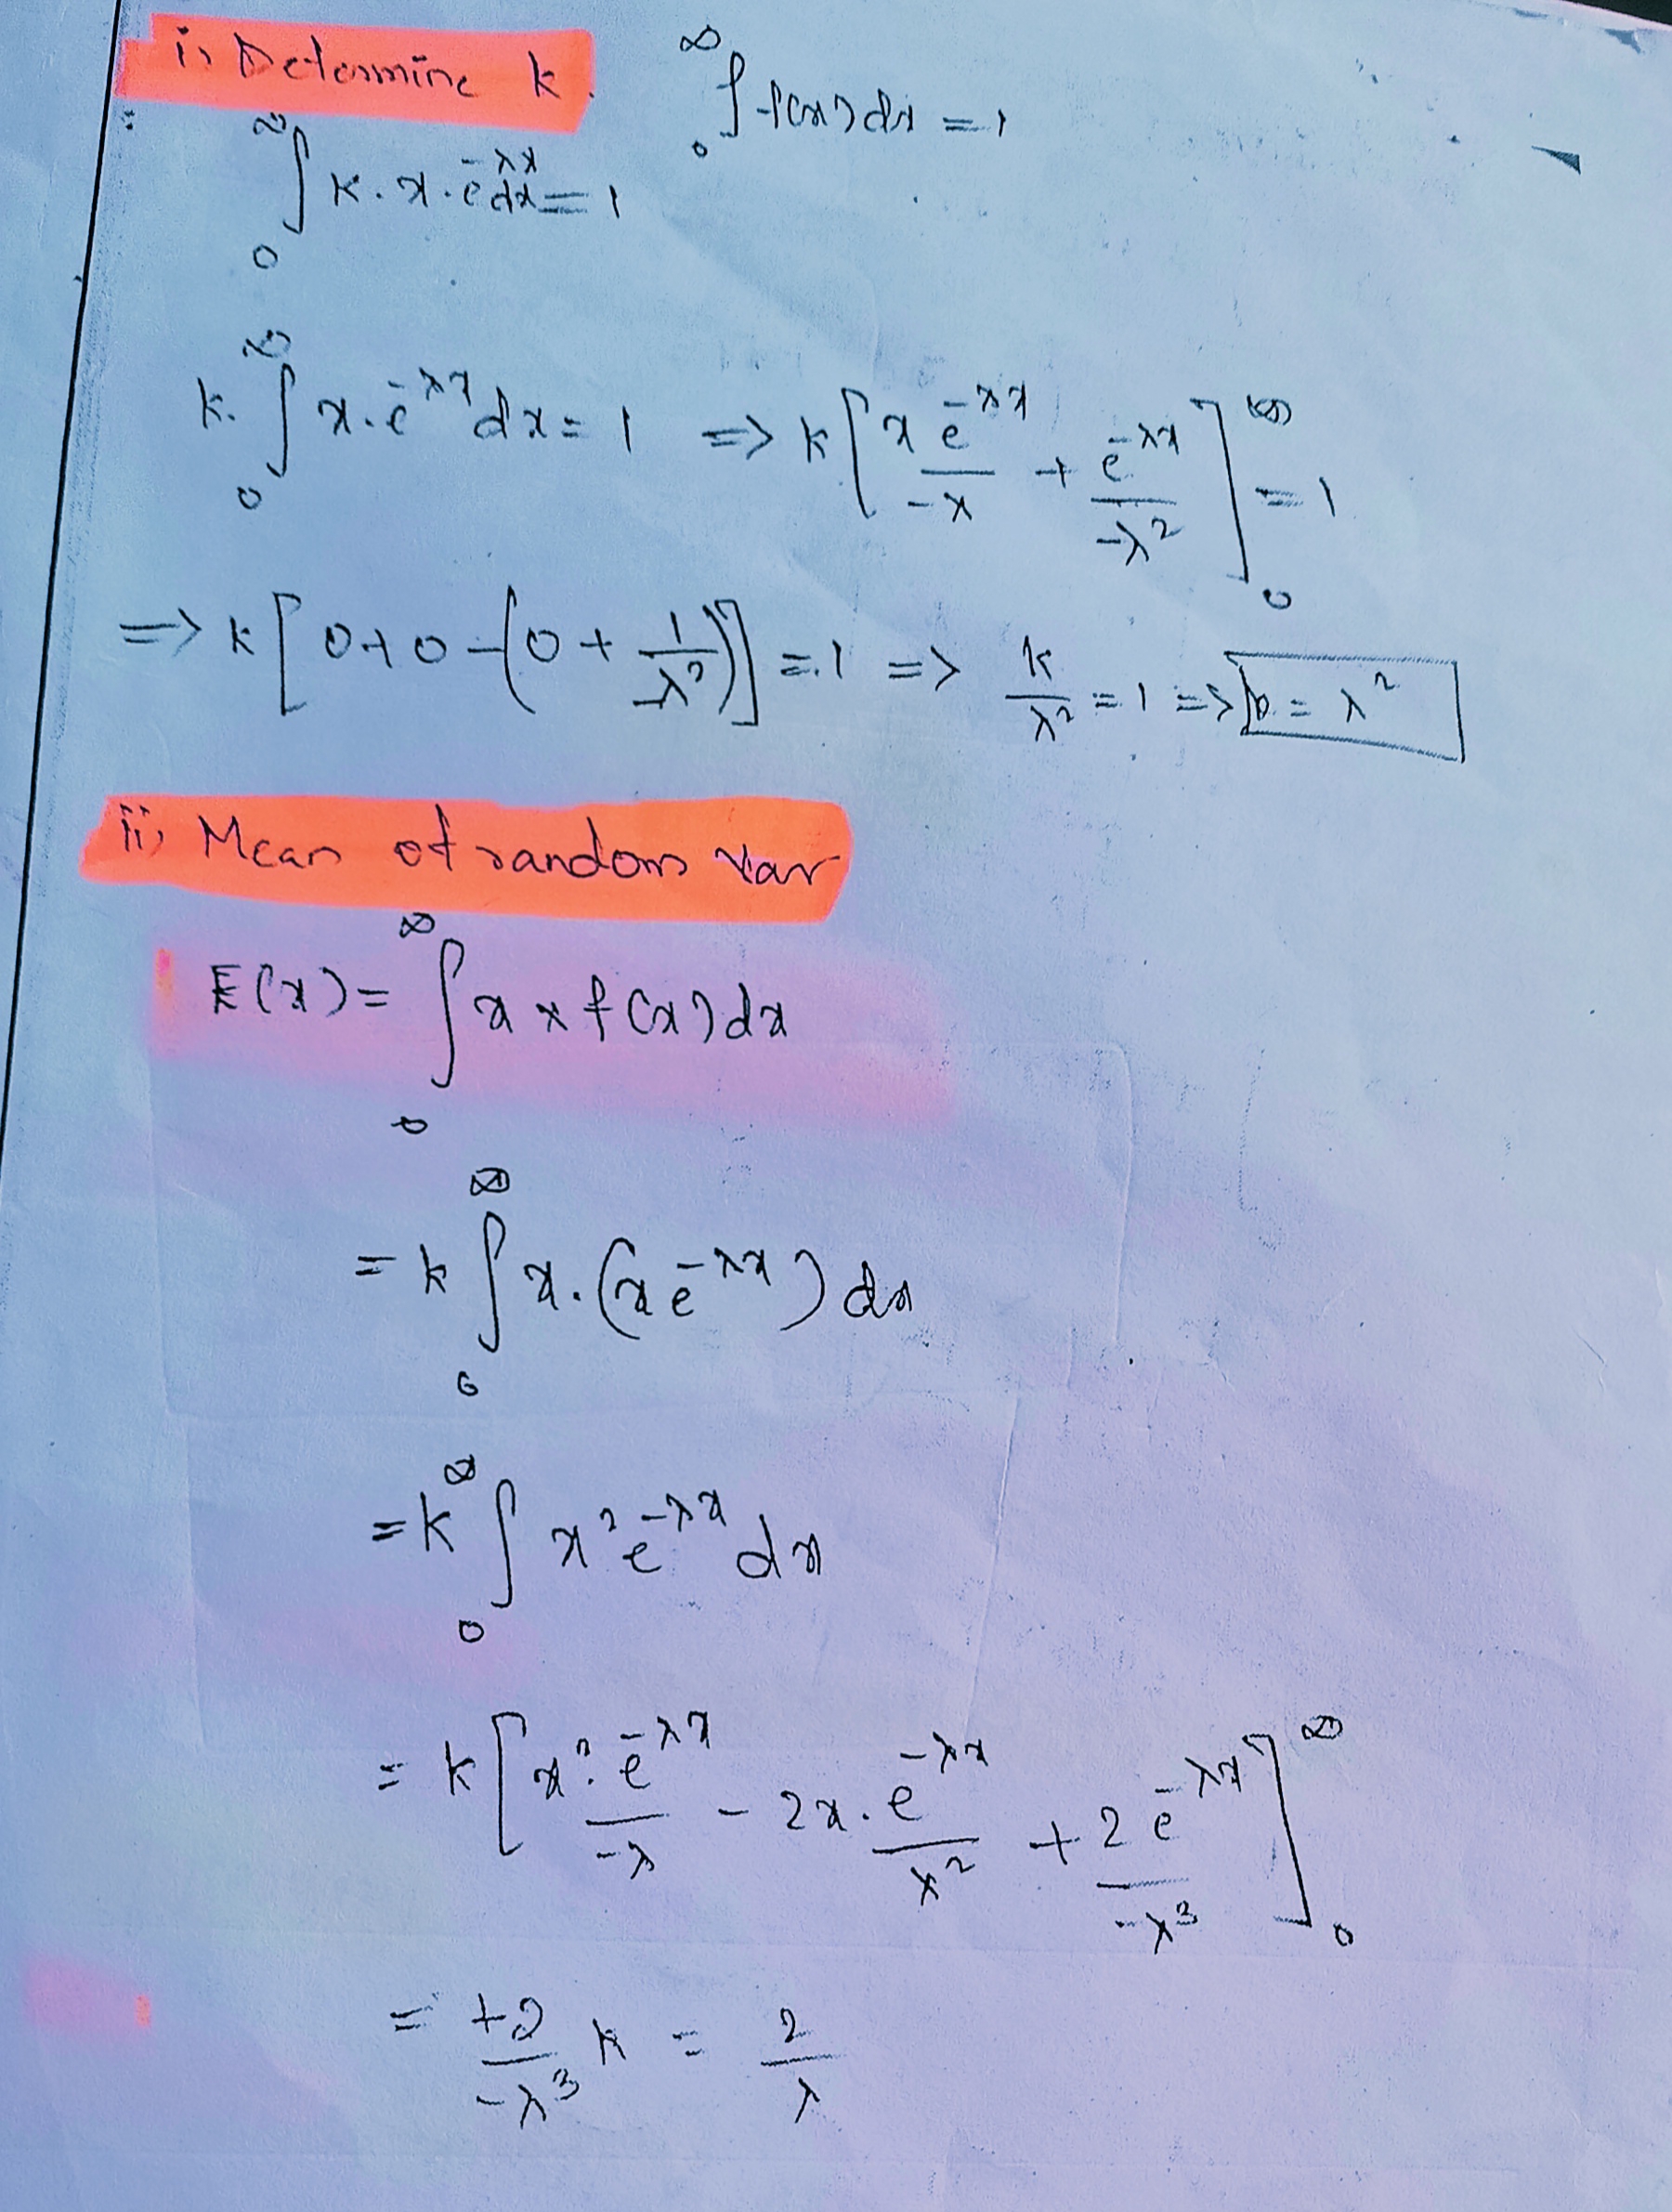 i, Determine k. ∞∫0 f(x) dx = 1
∞∫0 k.x.e^-λx dx = 1
k. ∞∫0 x.e^-λx dx = 1 => k [x e^-λx/-λ + e^-λx/-λ^2]∞0 = 1
=> k [0+0-(0+1/λ^2)] = 1 => k/λ^2 = 1 => k = λ^2
ii, Mean of random var
E(x) = ∞∫0 x × f(x) dx
= k ∞∫0 x.(x e^-λx) dx
= k ∞∫0 x^2 e^-λx dx
= k [x^2. e^-λx/-λ - 2x. e^-λx/λ^2 + 2 e^-λx/-λ^3]∞0
= +2/-λ^3 k = 2/λ